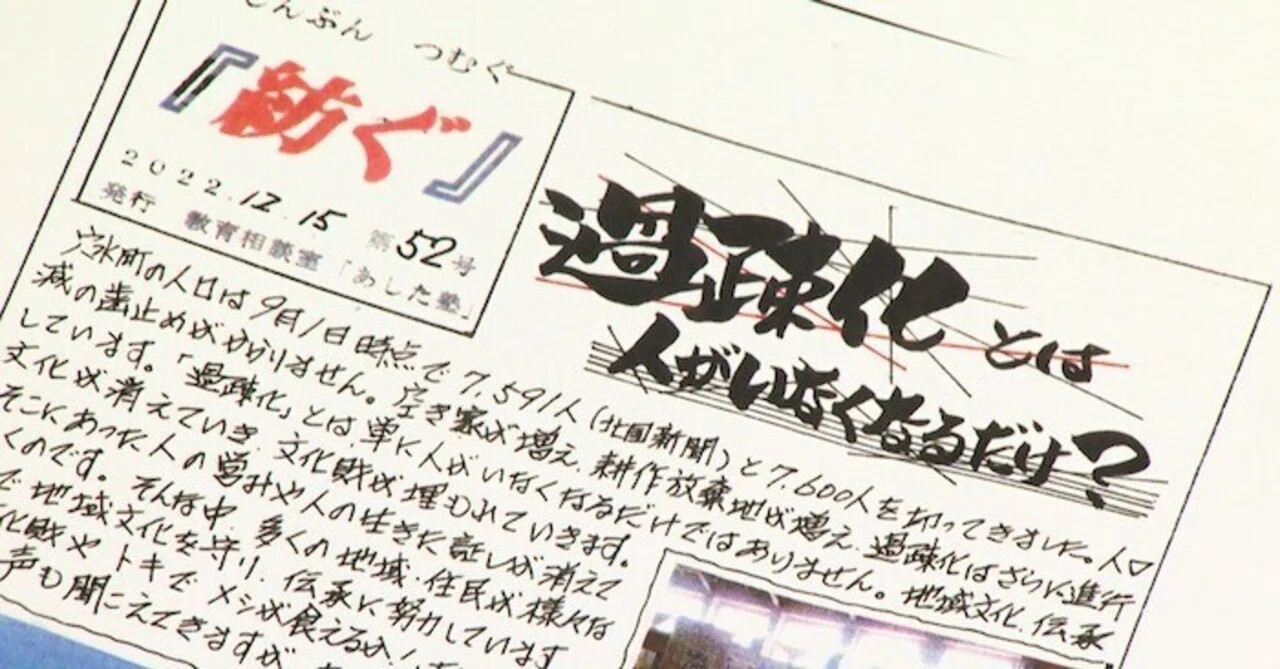 しんぶん つむぐ
『紡ぐ』
2022.12.15 第52号
発行 教育相談室「あした塾」
過疎化とは
人がいなくなるだけ?
穴水町の人口は9月1日時点で7,591人(北国新聞)と7,600人を切ってきました。人口
減の歯止めがかかりません。空き家が増え、耕作放棄地が増え、過疎化はさらに進行
しています。「過疎化」とは単に人がいなくなるだけではありません。地域文化、伝承
文化が消えていき、文化財が埋もれていきます。
そこにあった人の営みや人の生きた証しが消えて
くのです。そんな中、多くの地域・住民が様々な
で地域文化を守り、伝承に努力しています
化財やトキでメシが食えるか!
声も聞こえてきますが、